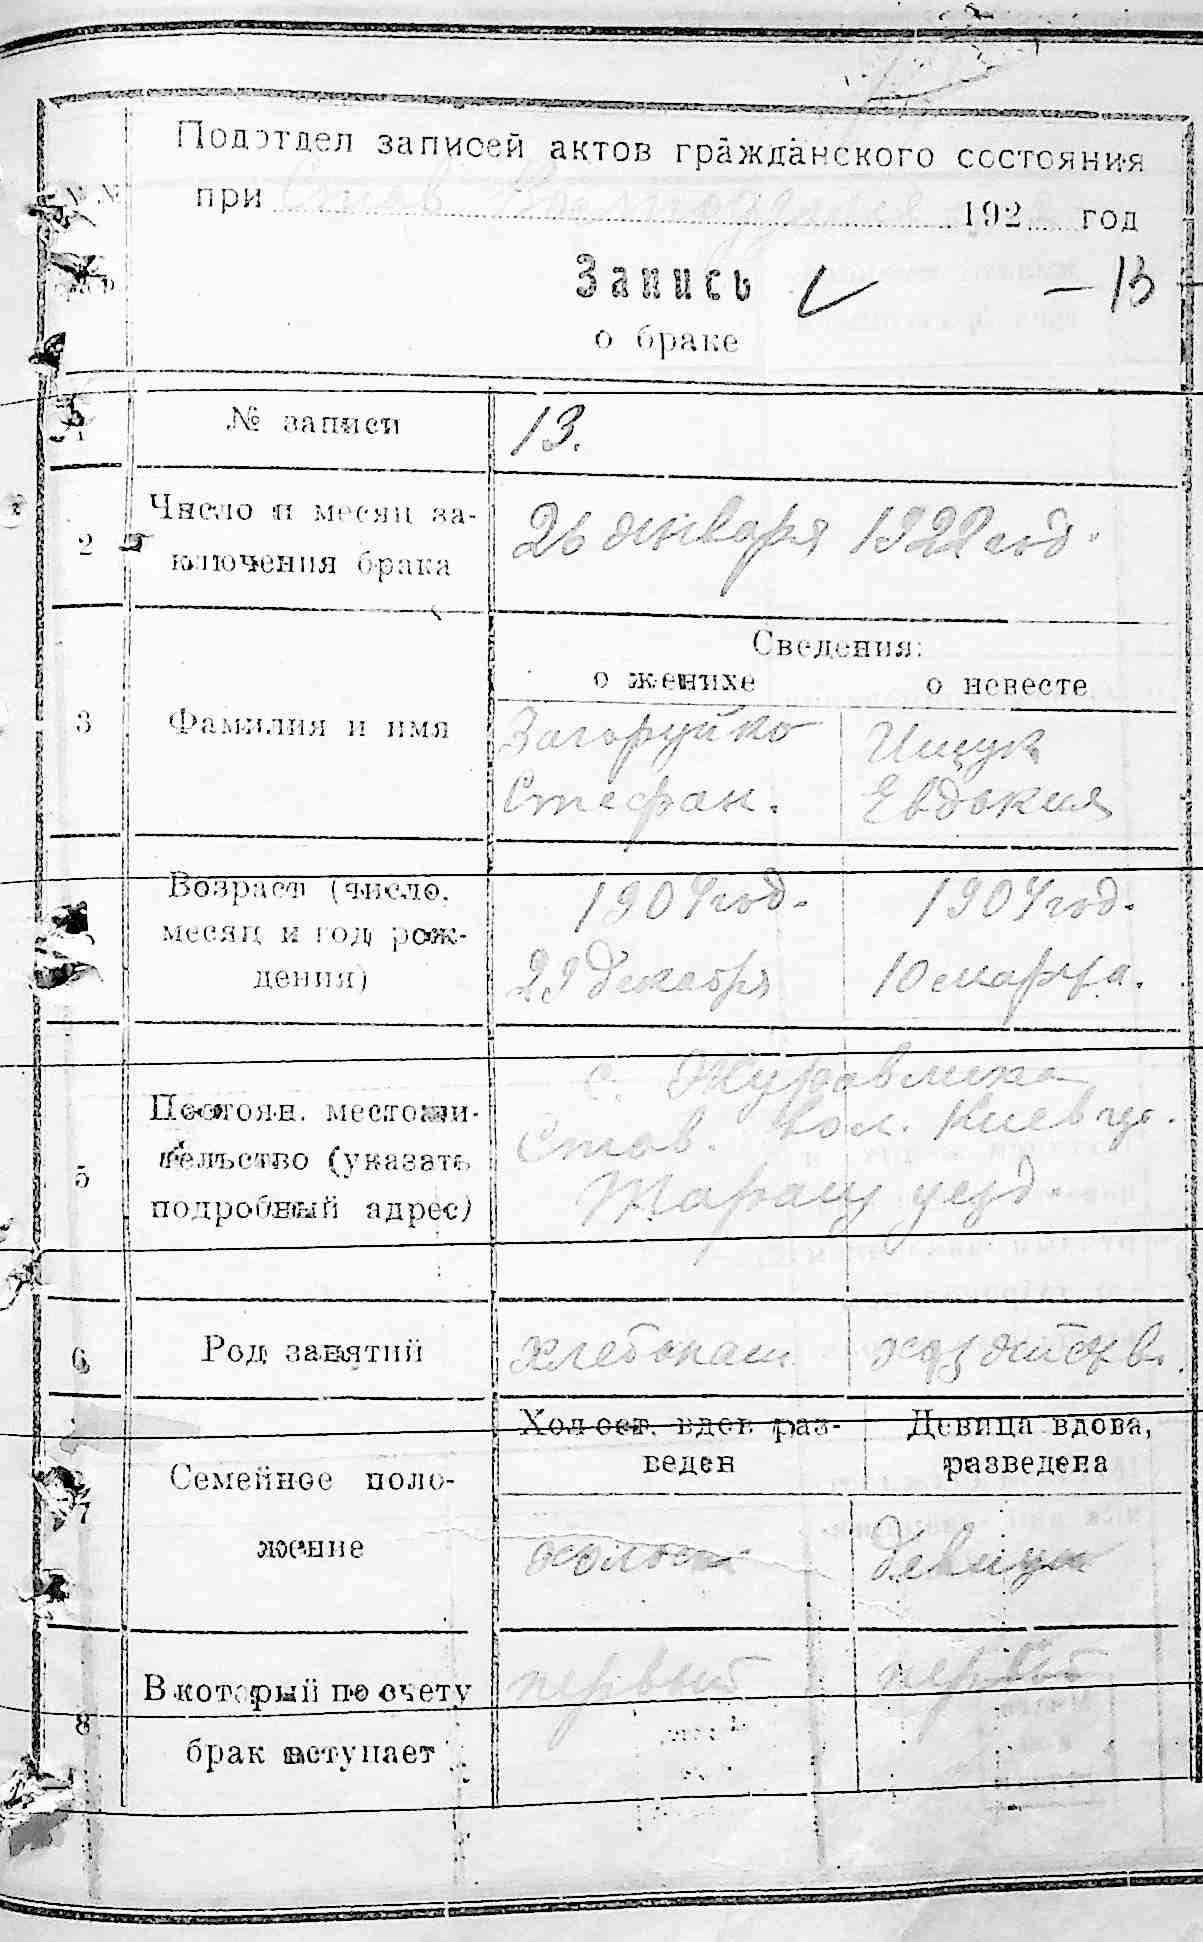 Подотдел записей актов гражданского состояния
при Став 192 год
Запись
- 13
о браке
1 № записи 13.
2 Число и месяц за-
ключения брака 26 января 1922 год.
Сведения:
о женихе о невесте
3 Фамилия и имя Загоруйко Ищук
Стефан. Евдокия
Возраст (число, 1904 год. 1904 год.
месяц и год рож-
дения) 29 декабря 10 марта.
с. Журавлиха
5 Постоян. местожи-
тельство (указать Став. вол. Киев гу.
подробный адрес) Таращ уезд.
6 Род занятий хлебопаш
Холост. вдов раз- Девица вдова,
веден разведена
7 Семейное поло-
жение холост девица
8 В который по счету первый первый
брак вступает